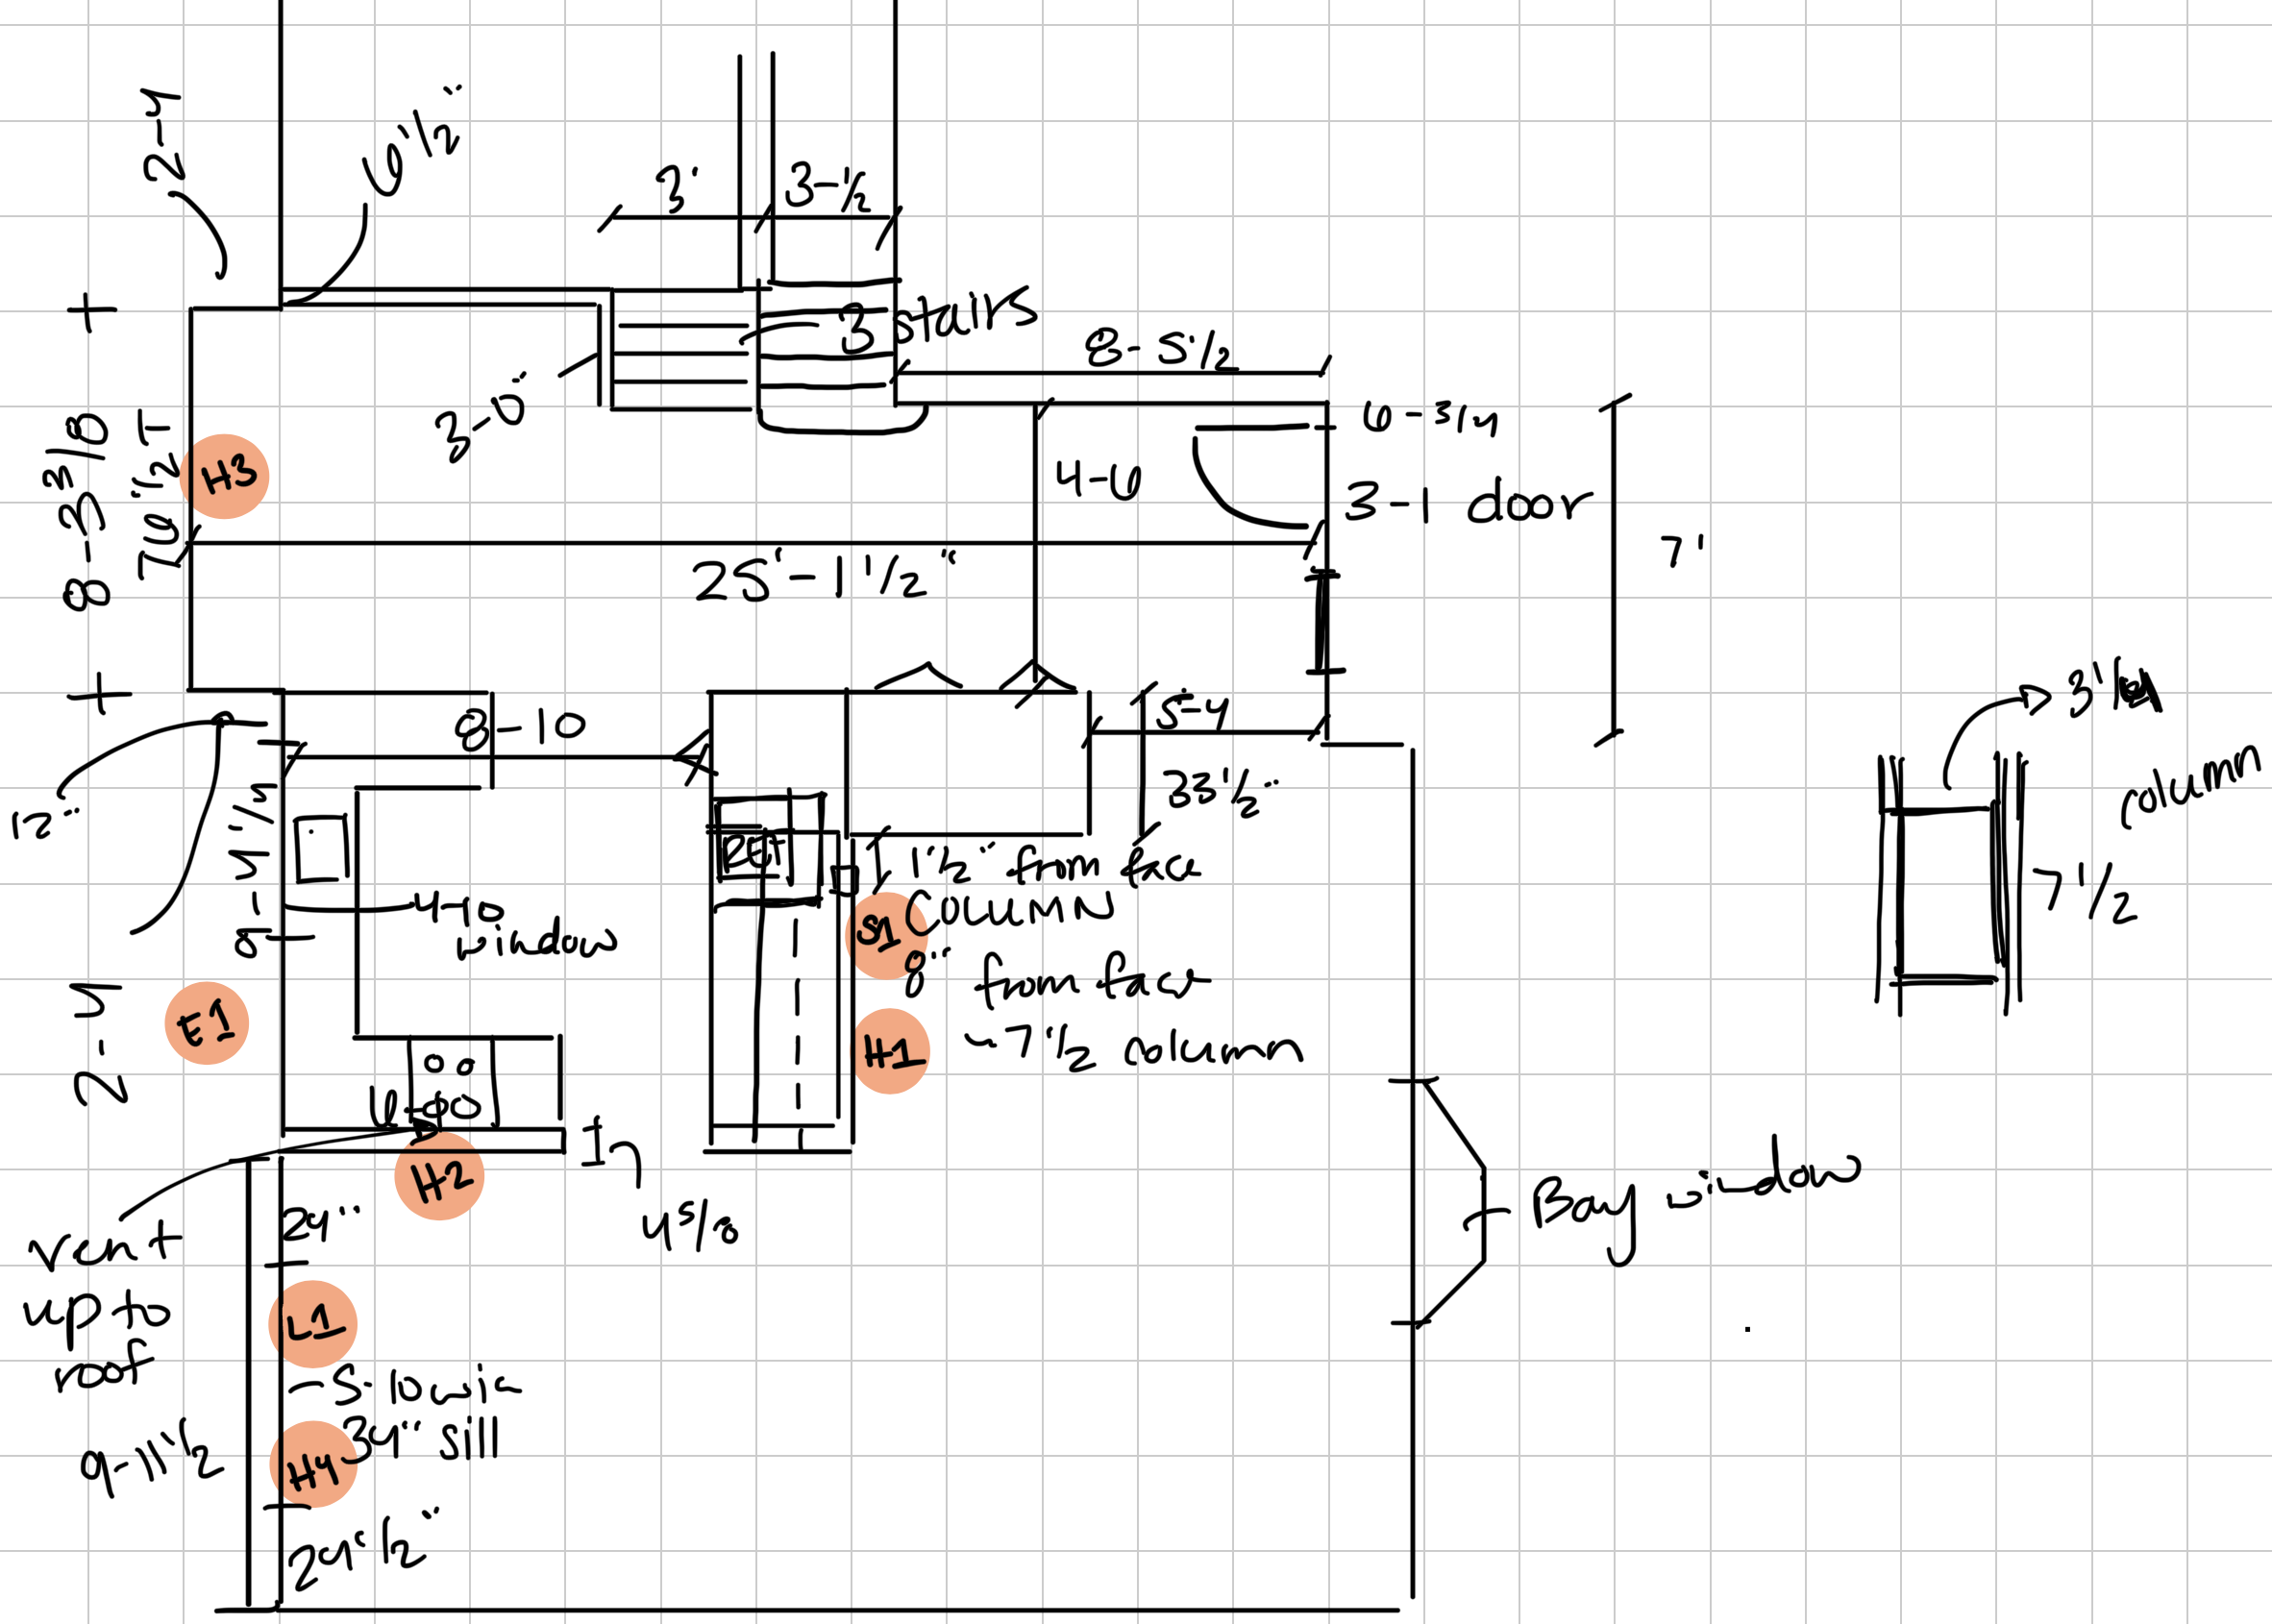 2-4
6 1/2"
3'
3-1/2
3 stairs
8-5 1/2
3-0"
6-3/4
3-1 door
4-6
7'
8-3 3/8
H3
25'-1 1/2"
8-10
5-4
33 1/2"
12"
9-4 1/2
4-10
window
REF
1 1/2" from face
COLUMN
S1
8" from face
H1
-7 1/2 column
3 1/2
column
7 1/2
2-4
E1
H2
4 5/8
Bay window
vent
up to
roof
24"
L1
34" sill
H4
9-11 1/2
29 1/2"